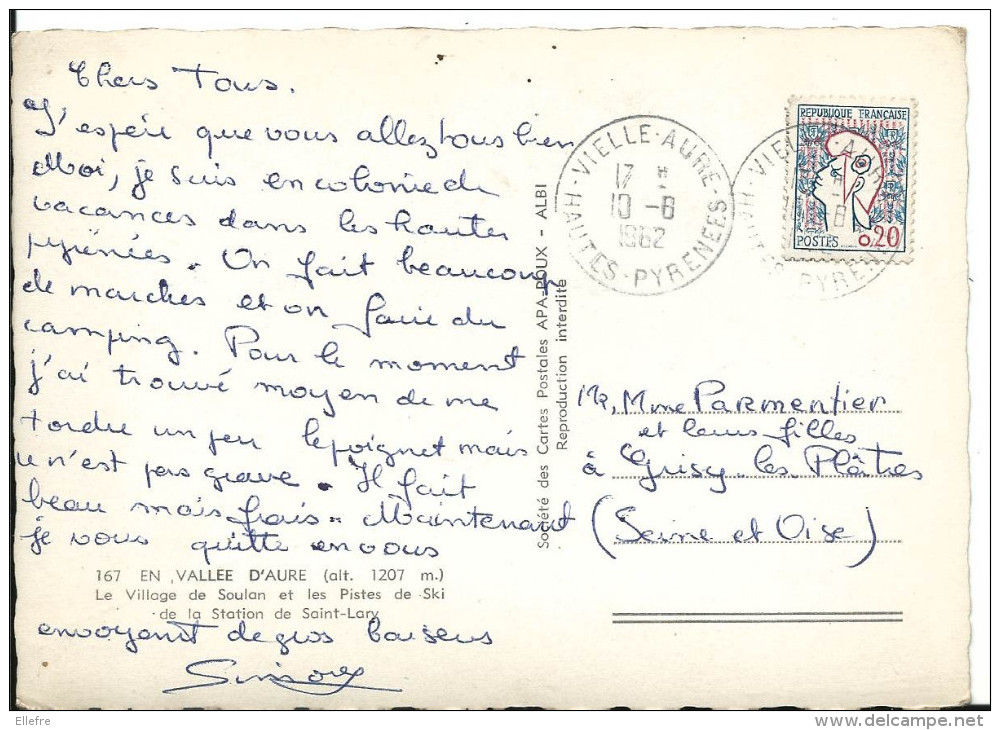 Chers Tous.
J'espère que vous allez tous bien
Moi, je suis en colonie de
vacances dans les hautes
pyrénées. On fait beaucoup
de marches et on faire du
camping. Pour le moment
j'ai trouvé moyen de me
tordre un peu le poignet mais
ce n'est pas grave. Il fait
beau mais frais. Maintenant
je vous quitte en vous
167 EN VALLEE D'AURE (alt. 1207 m.)
Le Village de Soulan et les Pistes de Ski
de la Station de Saint-Lary
envoyant de gros baisers
Société des Cartes Postales APA-POUX - ALBI
Reproduction interdite
VIELLE-AURE
17 H
10 -8
1962
HAUTES-PYRENEES
REPUBLIQUE FRANÇAISE
POSTES
0,20
VIELLE-AURE
HAUTES-PYRENEES
Mr, Mme Parmentier
et leurs filles
à Grisy-les-Plâtres
(Seine et Oise)
Ellefre
delcampe.net